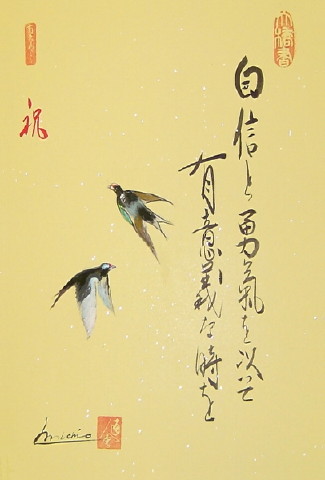 自信と勇氣を以て
有意義な時を
祝
Michio